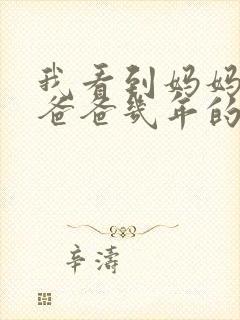 我看到妈妈
爸爸幾年的
辛濤